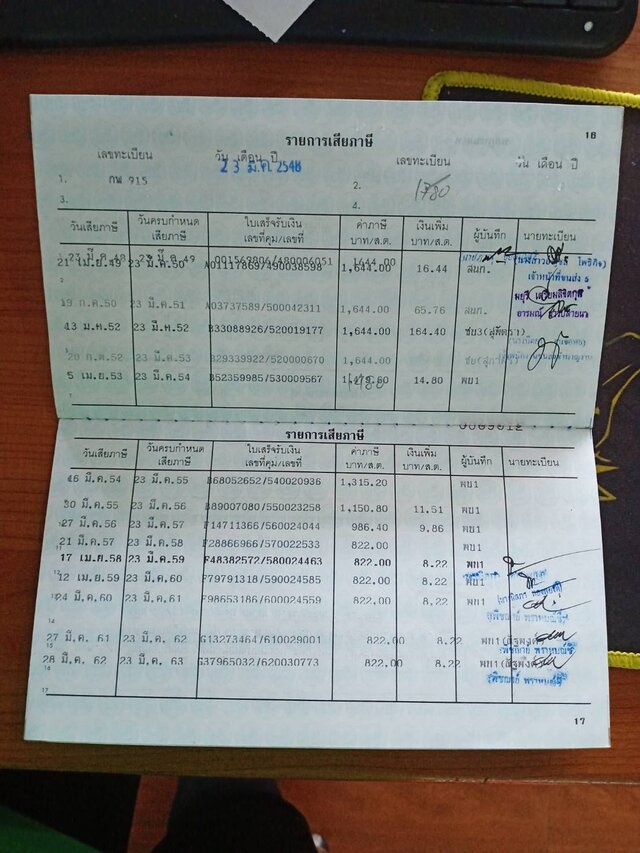 16
รายการเสียภาษี
เลขทะเบียน วัน เดือน ปี เลขทะเบียน วัน เดือน ปี
1. กพ 915 23 มี.ค. 2548 2.
3. 4.
วันเสียภาษี วันครบกำหนดเสียภาษี ใบเสร็จรับเงิน เลขที่คุม/เลขที่ ค่าภาษี บาท/ส.ต. เงินเพิ่ม บาท/ส.ต. ผู้บันทึก นายทะเบียน
23 มี.ค. 49 001569806/480006051 1644.00
21 เม.ย.49 23 มี.ค.50 A01117869/490038598 1,644.00 16.44 สมก.
เจ้าหน้าที่ขนส่ง 5
19 ก.ค.50 23 มี.ค.51 A03737589/500042311 1,644.00 65.76 สมก.
13 ม.ค.52 23 มี.ค.52 B33088926/520019177 1,644.00 164.40
20 ก.ค.52 23 มี.ค.53 B29339922/520000670 1,644.00
5 เม.ย.53 23 มี.ค.54 B52359985/530009567 14.80 พบ1
รายการเสียภาษี
วันเสียภาษี วันครบกำหนดเสียภาษี ใบเสร็จรับเงิน เลขที่คุม/เลขที่ ค่าภาษี บาท/ส.ต. เงินเพิ่ม บาท/ส.ต. ผู้บันทึก นายทะเบียน
16 มี.ค.54 23 มี.ค.55 B68052652/540020936 1,315.20 พบ1
30 มี.ค.55 23 มี.ค.56 B89007080/550023258 1,150.80 11.51 พบ1
27 มี.ค.56 23 มี.ค.57 F14711366/560024044 986.40 9.86 พบ1
21 มี.ค.57 23 มี.ค.58 F28866966/570022533 822.00 พบ1
17 เม.ย.58 23 มี.ค.59 F48382572/580024463 822.00 8.22 พบ1
12 เม.ย.59 23 มี.ค.60 F79791318/590024585 822.00 8.22 พบ1
24 มี.ค.60 23 มี.ค.61 F98653186/600024559 822.00 8.22 พบ1
27 มี.ค. 61 23 มี.ค. 62 G13273464/610029001 822.00 8.22
28 มี.ค. 62 23 มี.ค. 63 G37965032/620030773 822.00 8.22
17
17